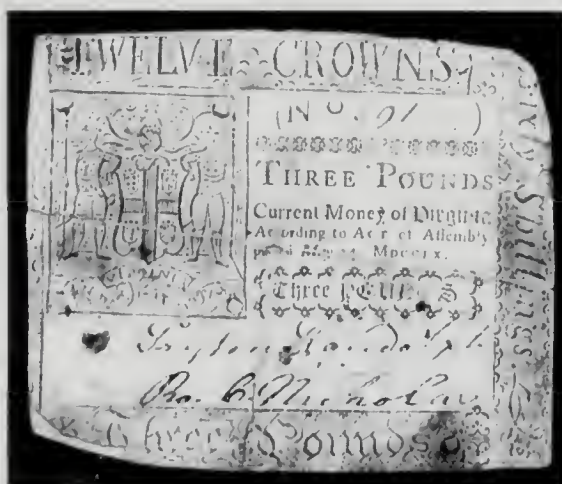 TWELVE CROWNS
(No. 91 )
THREE POUNDS
Current Money of Virginia
According to ACT of Assembly
Three POUNDS
Peyton Randolph
Ro. C. Nicholas
Three Pounds
Sixty Shillings